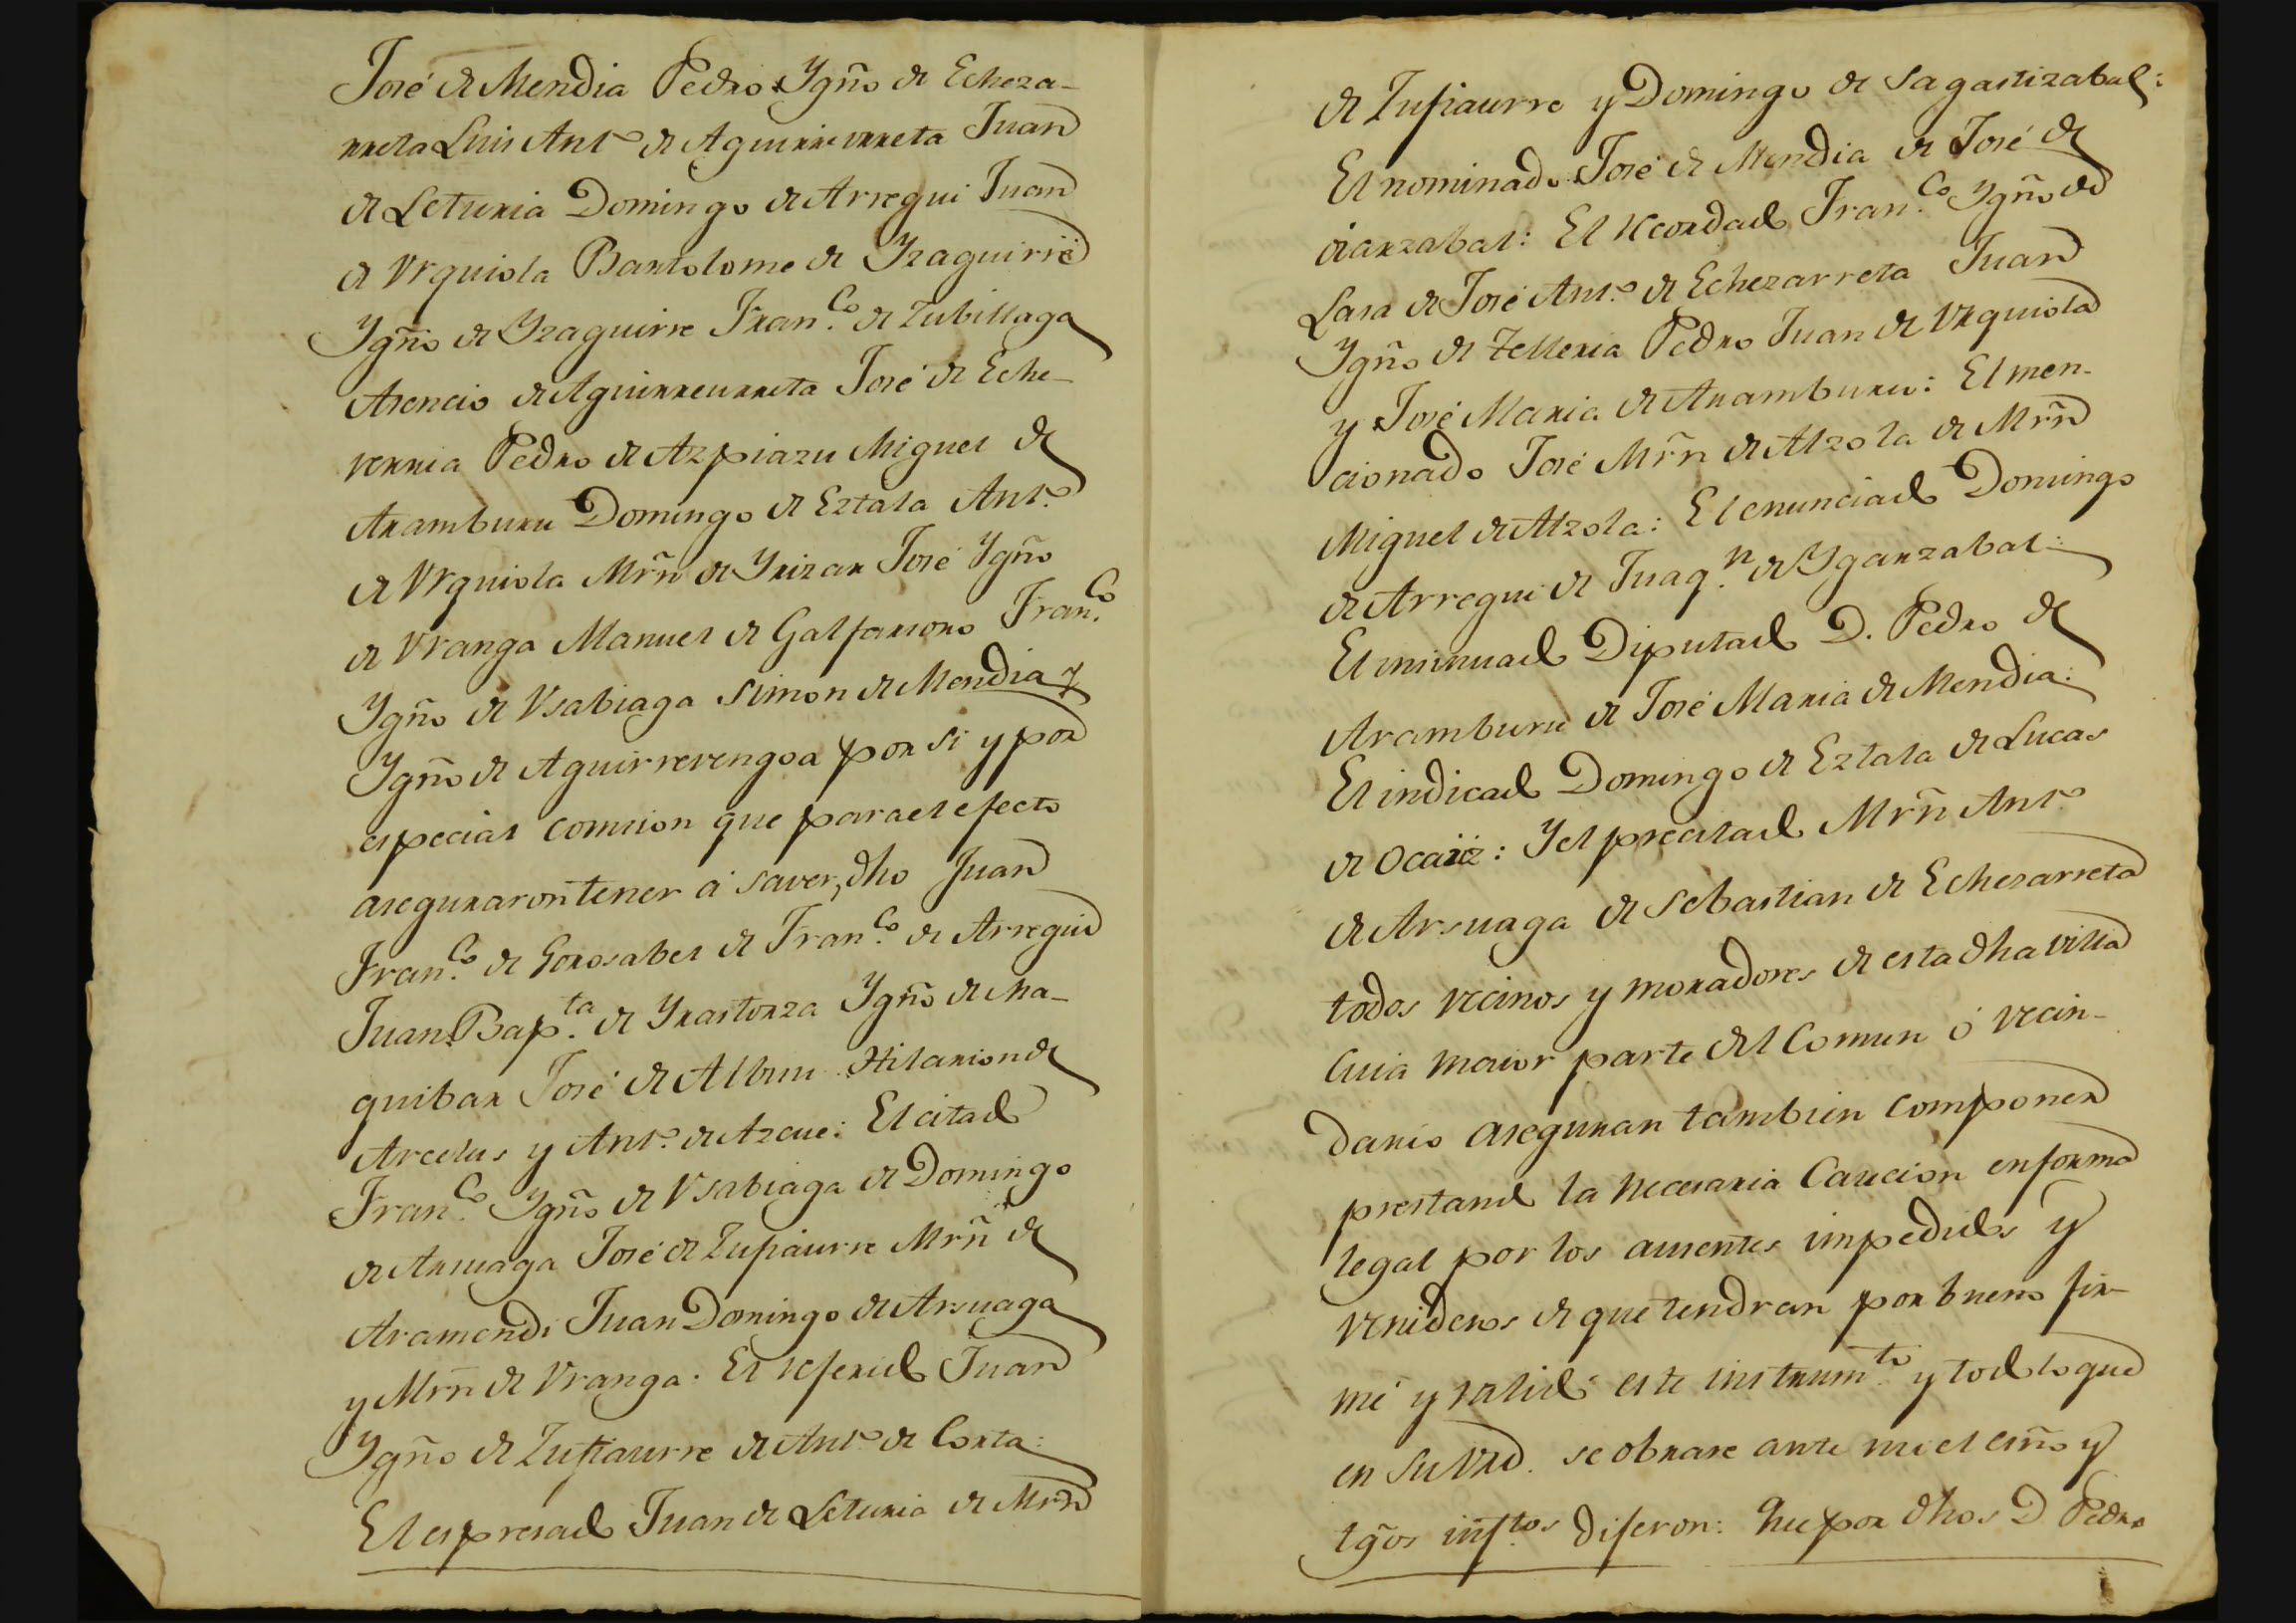 José de Mendia Pedro Ygño de Echeza-
rreta Luis Antº de Aguirreurreta Juan
de Leturia Domingo de Arregui Juan
de Vrquiola Bartolome de Yzaguirre
Ygño de Yzaguirre Franco. de Zubillaga
Asencio de Aguirreurreta José de Eche-
verria Pedro de Azpiazu Miguel de
Aramburu Domingo de Eztala Antº.
de Vrquiola Mrñ de Yrizar José Ygño
de Vranga Manuel de Galfarsoro Franco.
Ygño de Vsabiaga Simon de Mendia y
Ygño de Aguirrevengoa por si y por
especial comision que para el efecto
aseguraron tener á saver, dho Juan
Franco. de Gorosabel de Franco. de Arregui
Juan Bapta. de Yrastorza Ygño de Ma-
quibar José de Albisu Hilarion de
Arcelus y Antº. de Azcue: El citado
Franco. Ygño de Vsabiaga de Domingo
de Arsuaga José de Zufiaurre Mrñ de
Aramendi Juan Domingo de Arsuaga
y Mrñ de Vranga: El referido Juan
Ygño de Zufiaurre de Antº de Corta:
El espresado Juan de Leturia de Mrñ
de Zufiaurre y Domingo de Sagastizabal:
El nominado José de Mendia de José de
oiarzabal: El recordado Franco. Ygño de
Lasa de José Antº. de Echezarreta Juan
Ygño de Telleria Pedro Juan de Vrquiola
y José Maria de Aramburu: El men-
cionado José Mrñ de Alzola de Mrñ
Miguel de Alzola: El enunciado Domingo
de Arregui de Juaqn. de Yganzabal:
El insinuado Diputado D. Pedro de
Aramburu de José Maria de Mendia:
El indicado Domingo de Eztala de Lucas
de Ocaiz: Y el precitado Mrñ Antº
de Arsuaga de Sebastian de Echezarreta
todos vecinos y moradores de esta dha villa
Cuia maior parte del Comun ó vecin-
dario aseguran tambien componer
prestando la necesaria Caucion en forma
legal por los ausentes impedidos y
venideros de que tendran por bueno fir-
me y valido este instrumto. y todo lo que
en su vrd. se obrare ante mi el esño y
tgos inftos. Dijeron: Que por dhos D Pedro